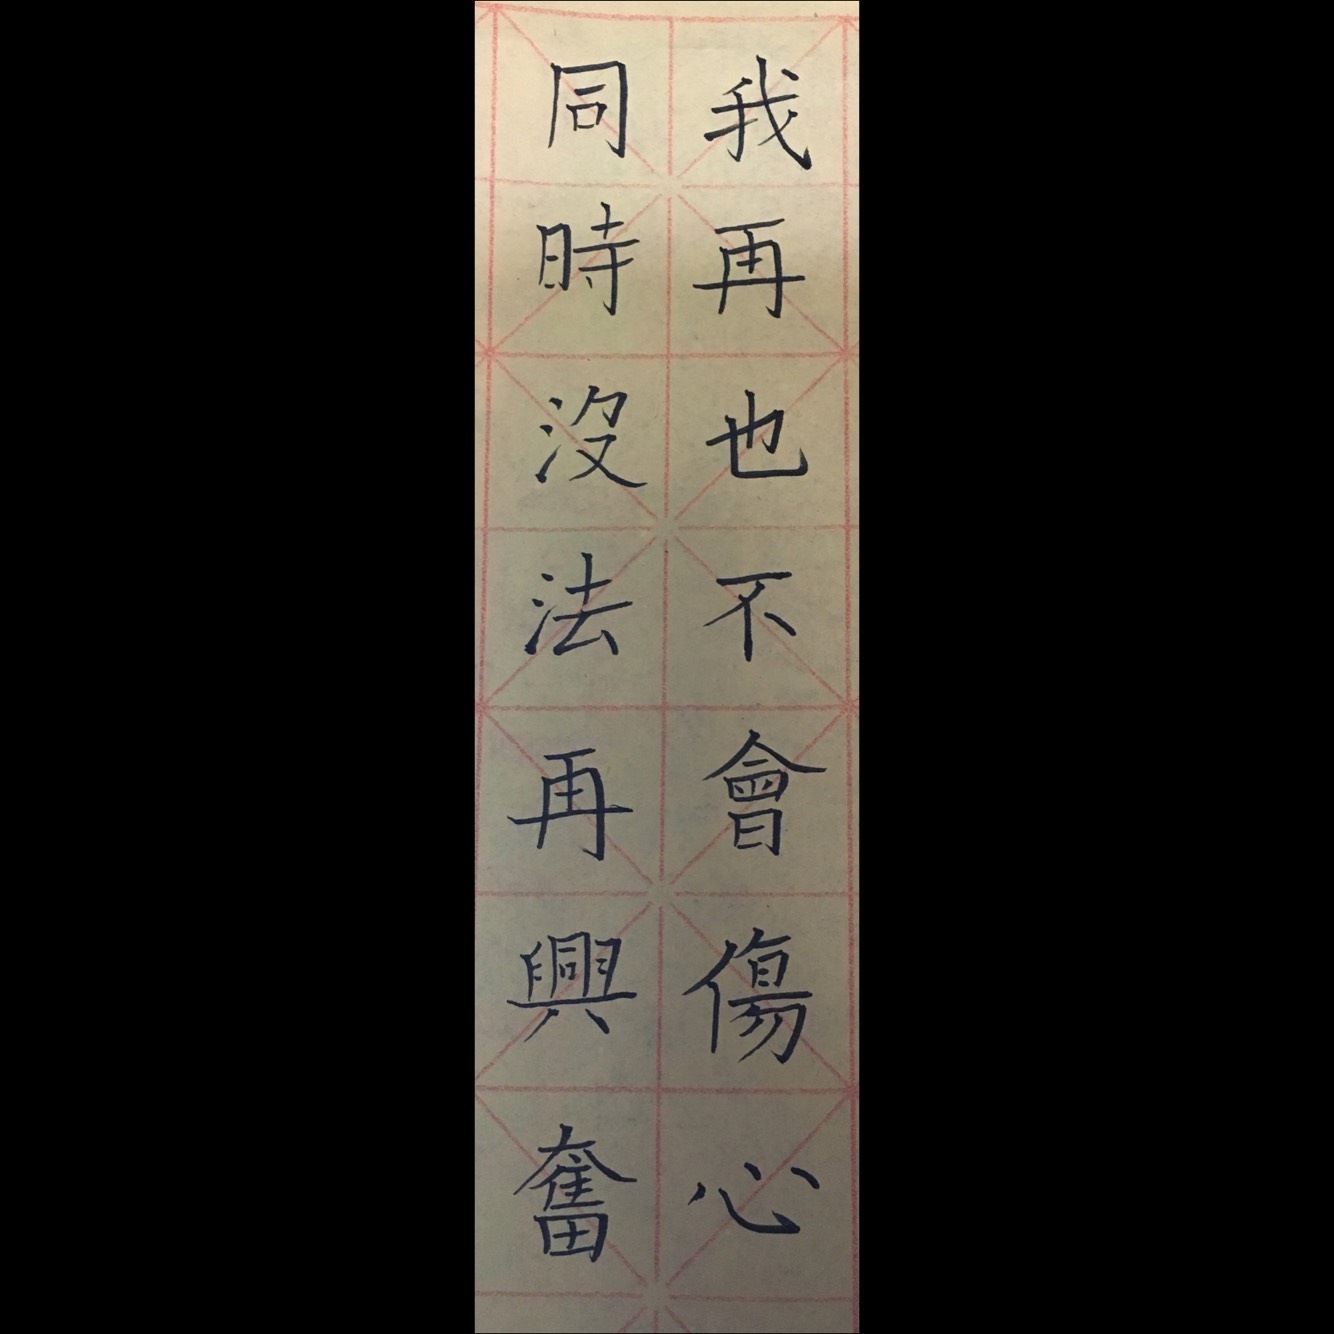 我再也不會傷心
同時沒法再興奮